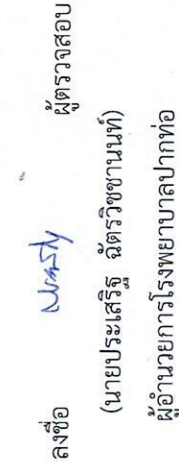 ลงชื่อ ผู้ตรวจสอบ
(นายประเสริฐ ฉัตรวิชชานนท์)
ผู้อำนวยการโรงพยาบาลปากท่อ